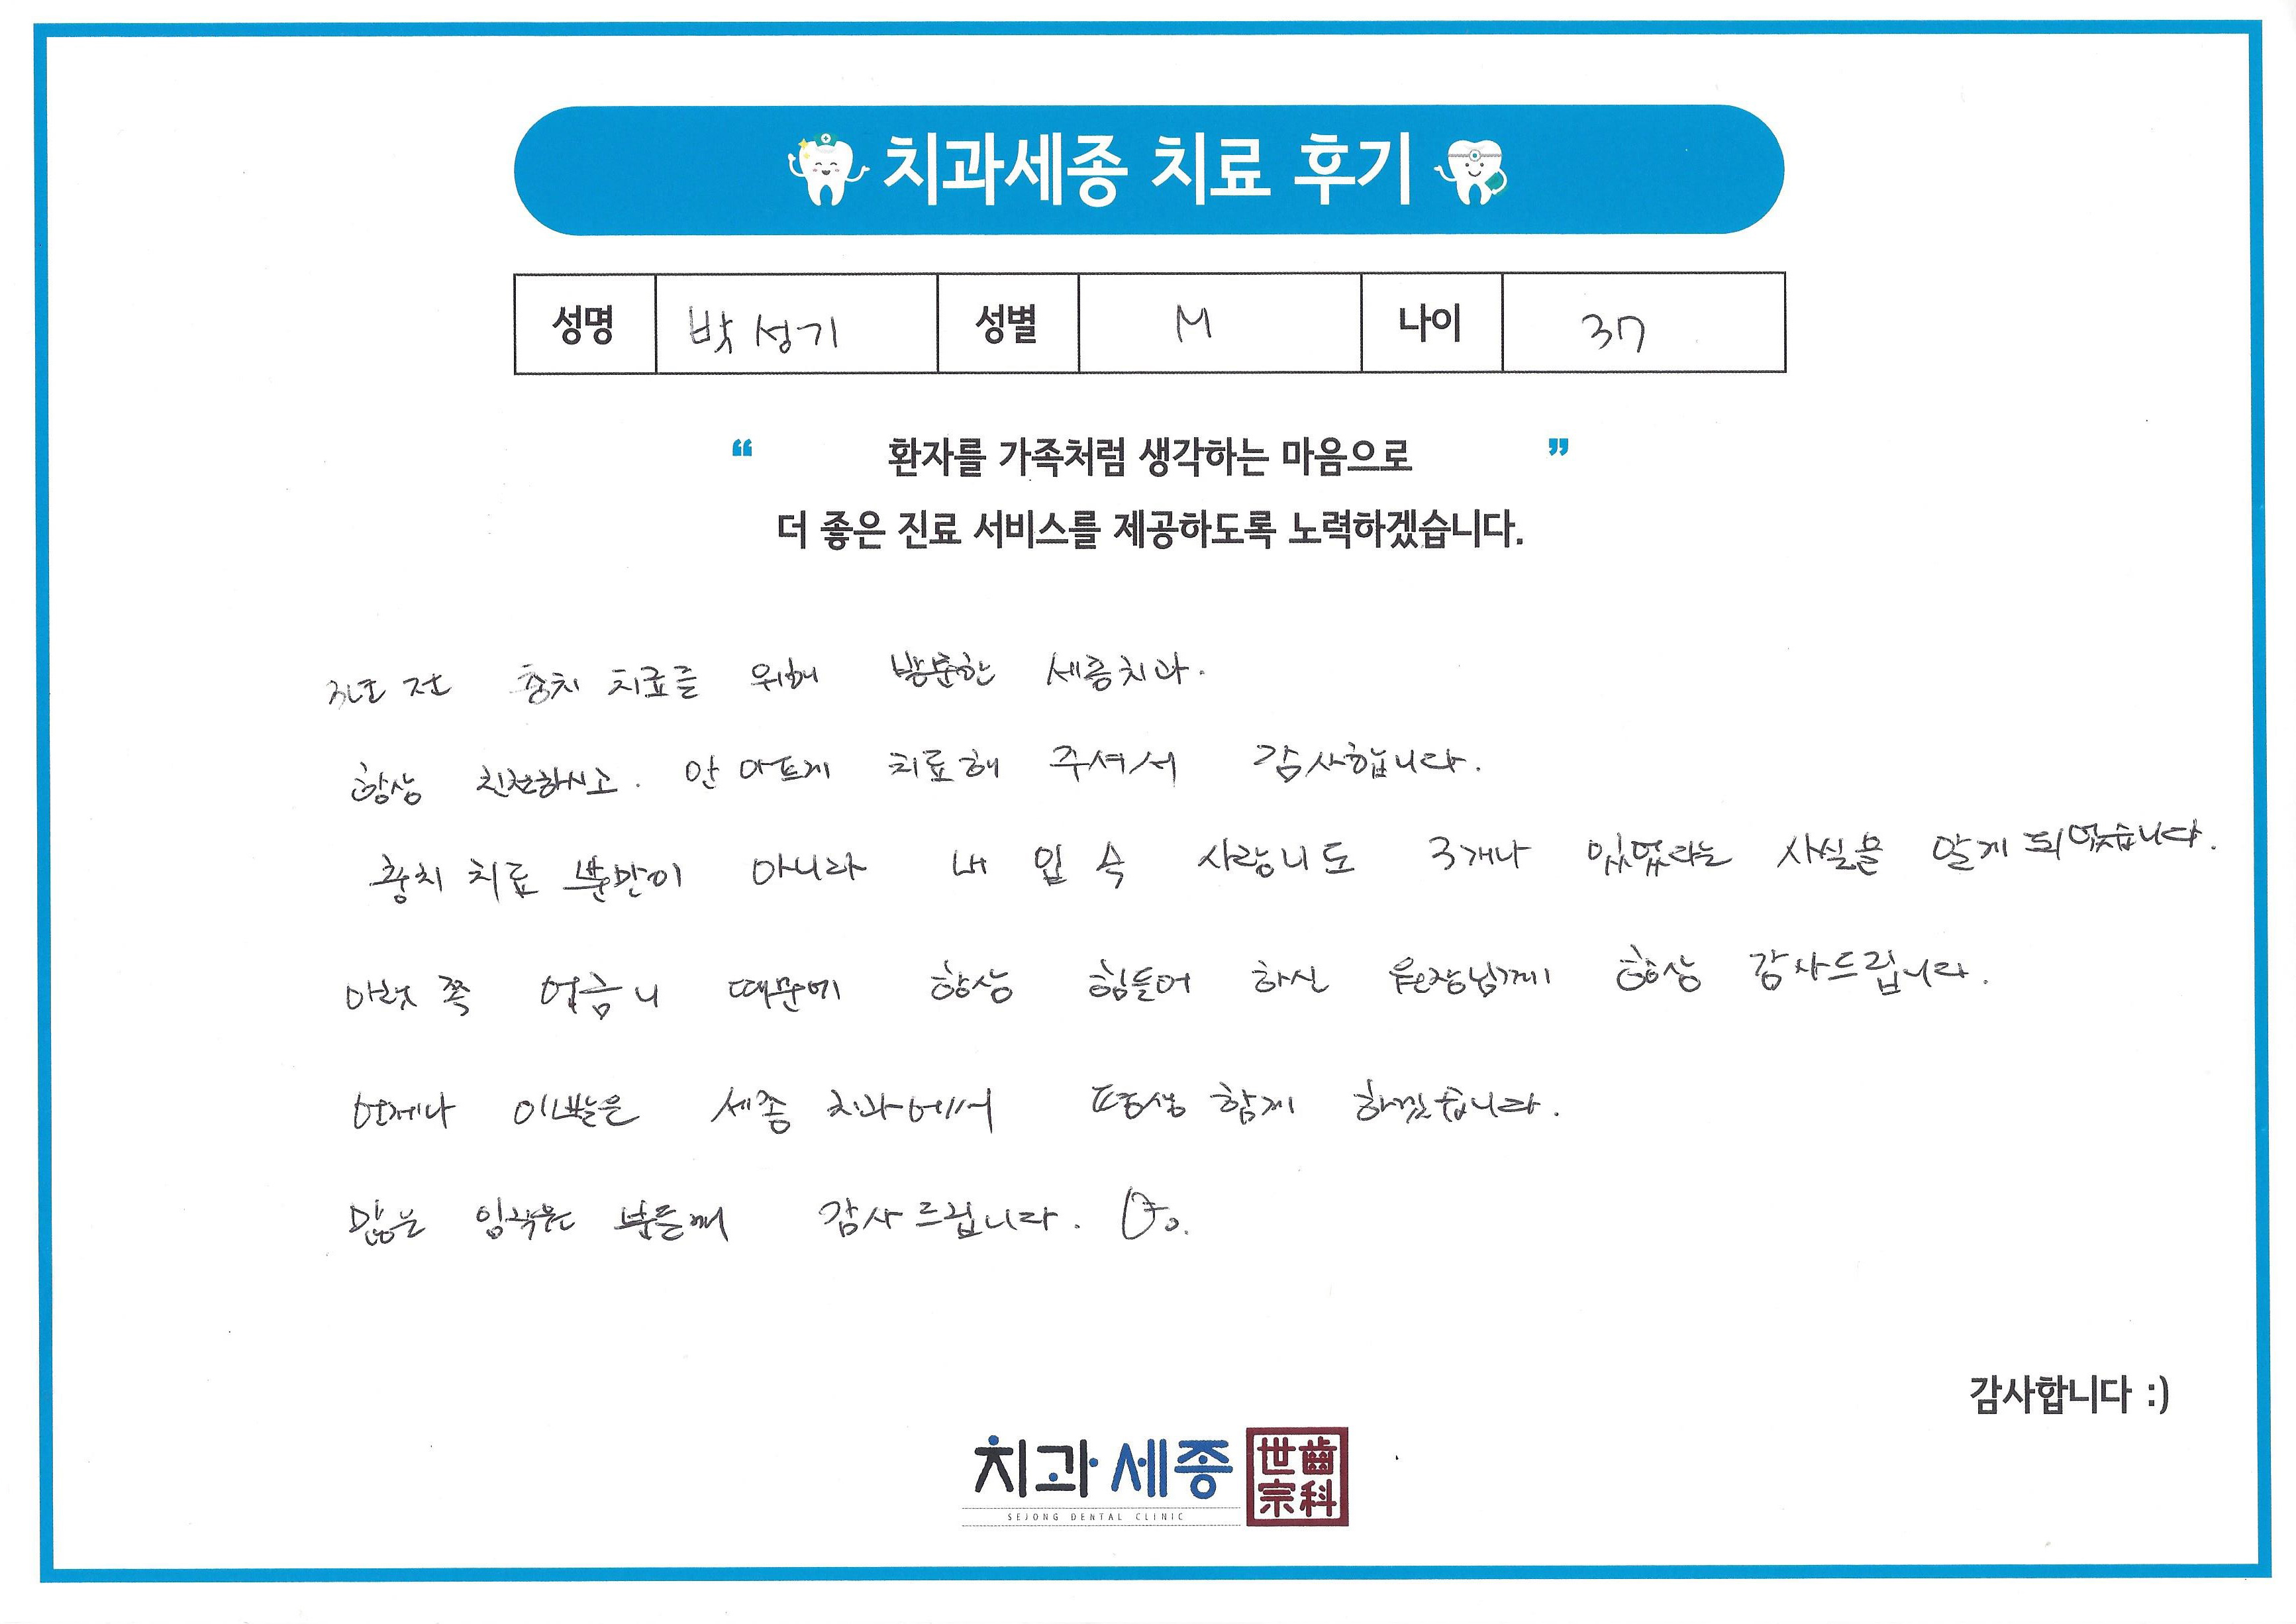 치과세종 치료 후기
성명 박성기 성별 M 나이 37
“ 환자를 가족처럼 생각하는 마음으로 ”
더 좋은 진료 서비스를 제공하도록 노력하겠습니다.
전 충치 치료를 위해 방문한 세종치과.
항상 친절하시고. 안 아프게 치료해 주셔서 감사합니다.
충치 치료 뿐만이 아니라 내 입 속 사랑니도 3개나 있었다는 사실을 알게 되었습니다.
아랫 쪽 어금니 때문에 항상 힘들어 하신 원장님께 항상 감사드립니다.
언제나 이빨은 세종 치과에서 평생 함께 하겠습니다.
많은 임직원 분들께 감사드립니다.
감사합니다 :)
치과세종 世齒
SEJONG DENTAL CLINIC 宗科